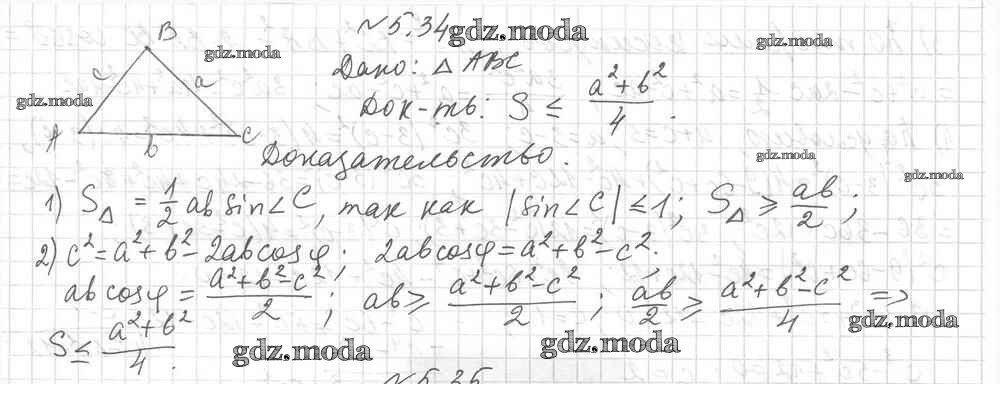 №5.34 gdz.moda
B
gdz.moda
gdz.moda
c
a
gdz.moda
A
b
C
Дано: △ ABC
Док-ть: S ≤ (a² + b²)/4.
Доказательство.
gdz.moda
gdz.moda
1) S△ = 1/2 ab sin∠C, так как |sin∠C| ≤ 1; S△ ≥ ab/2;
2) c² = a² + b² - 2abcosφ; 2abcosφ = a² + b² - c²;
ab cosφ = (a² + b² - c²)/2; ab ≥ (a² + b² - c²)/2; ab/2 ≥ (a² + b² - c²)/4 =>
gdz.moda
S ≤ (a² + b²)/4.
gdz.moda
gdz.moda
№5.35